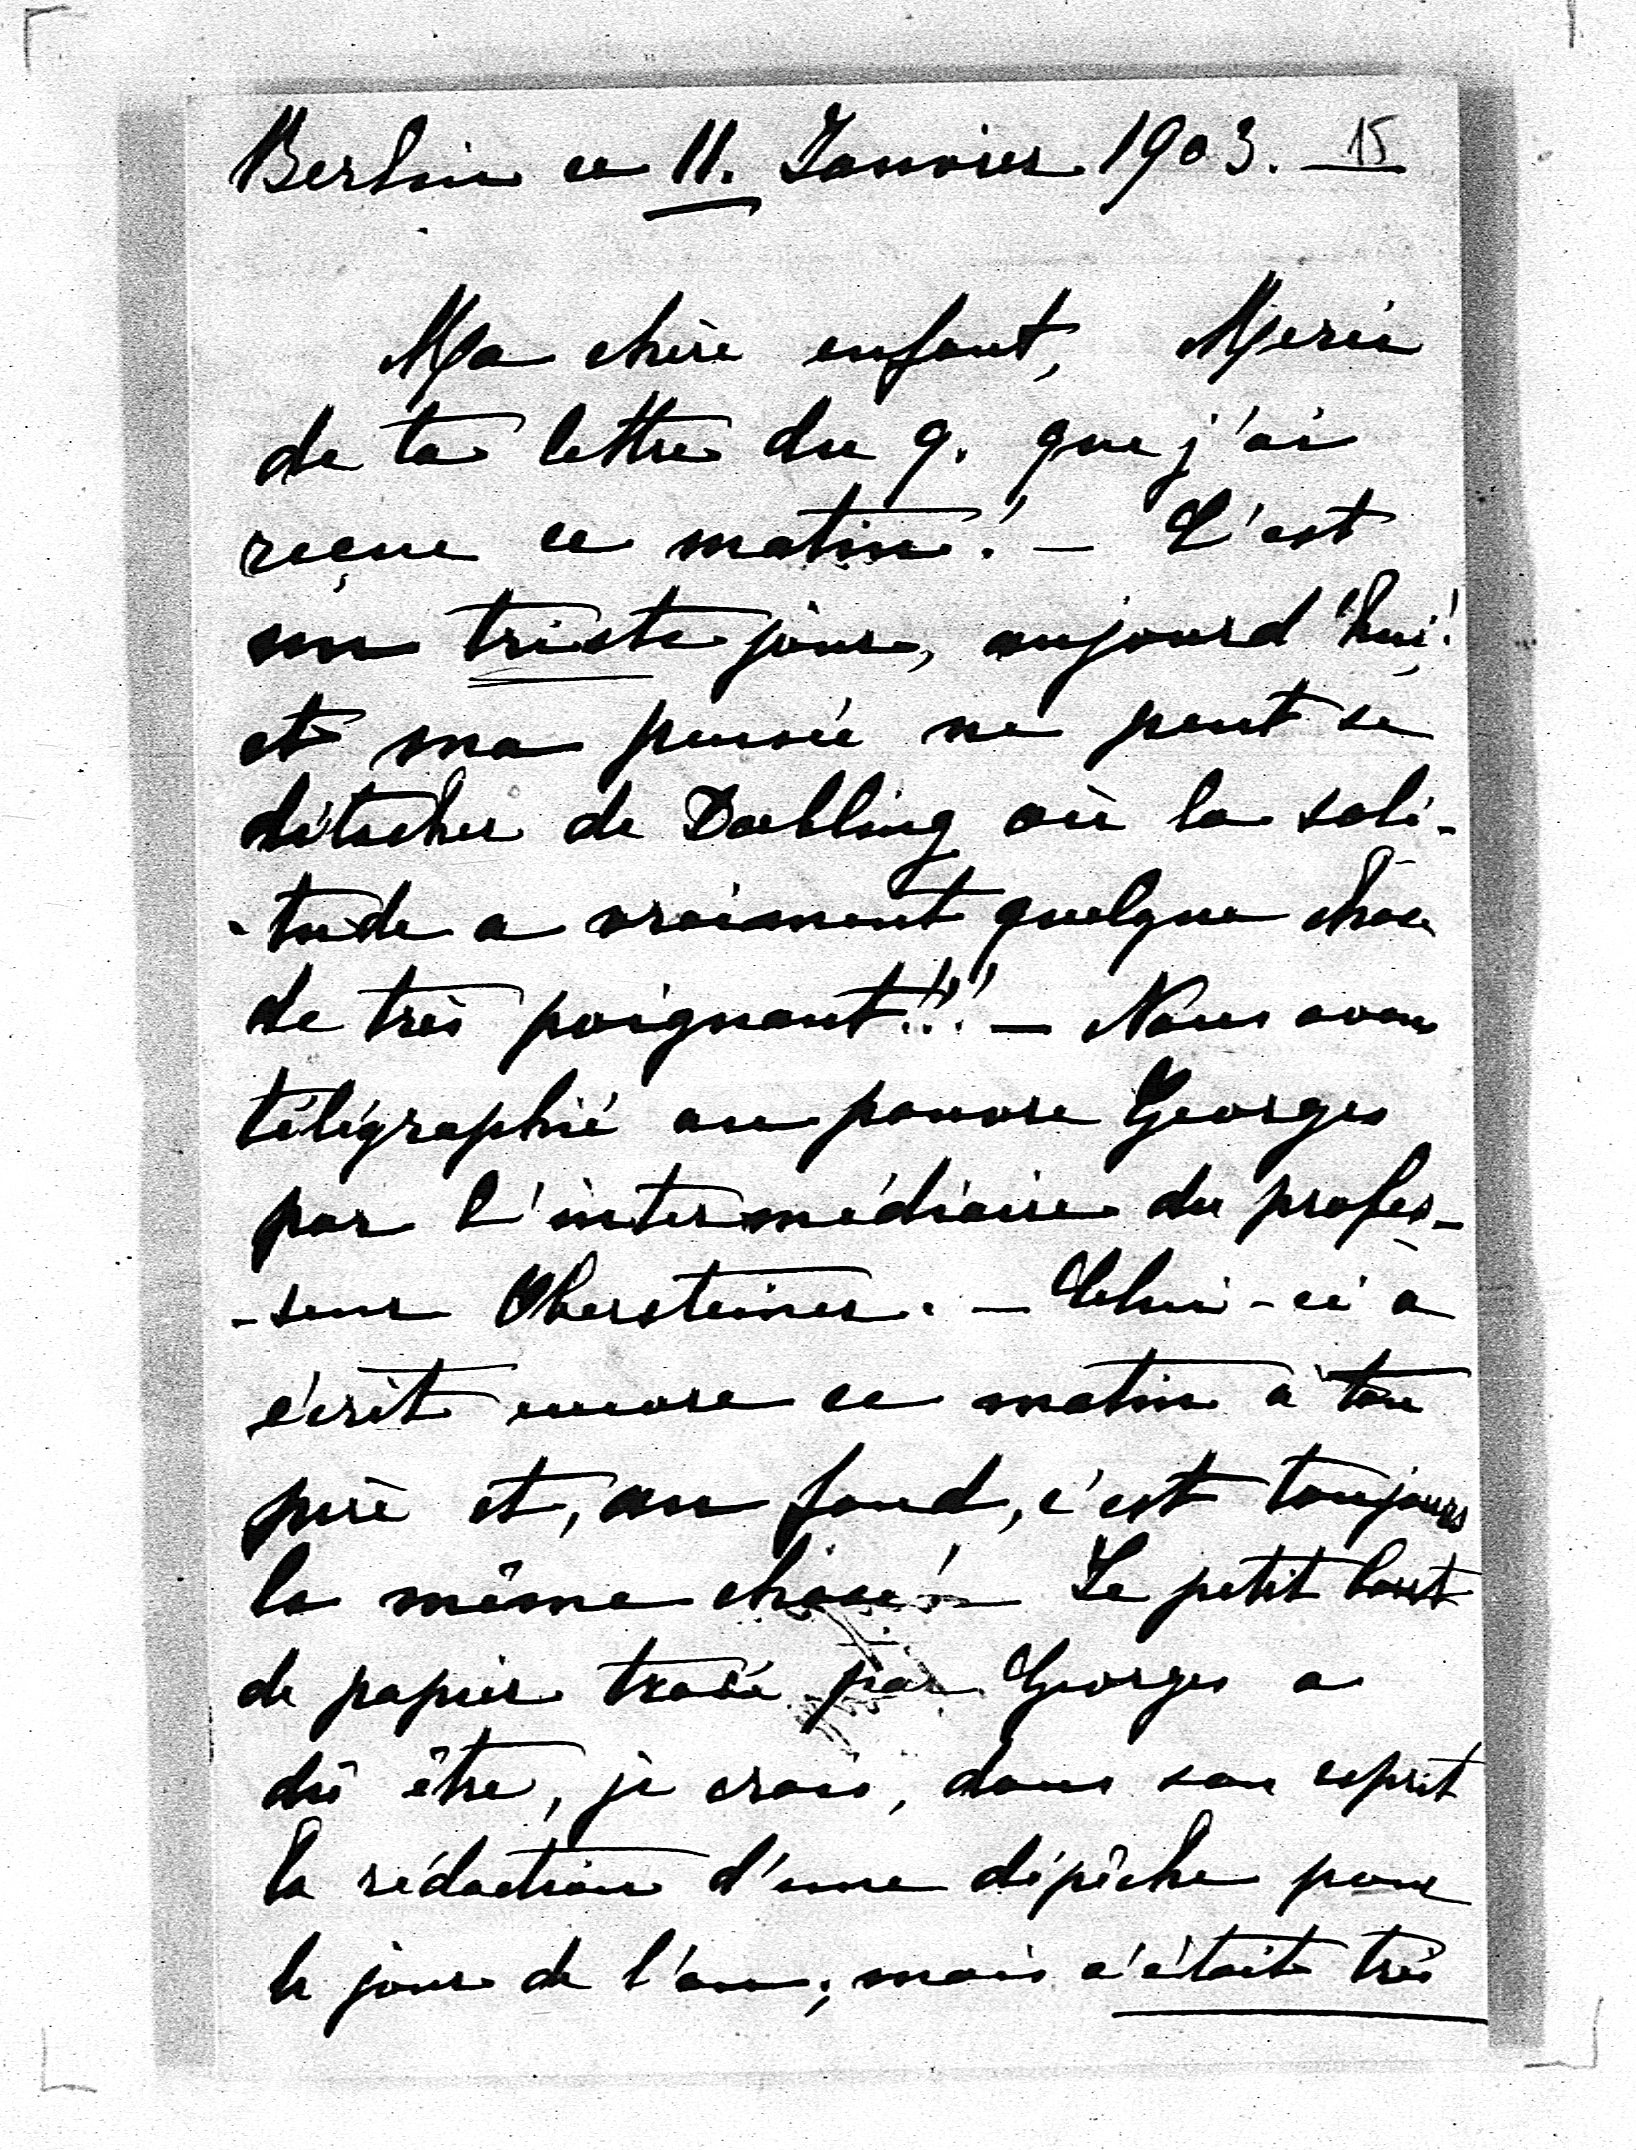 Berlin ce 11. Janvier 1903. 15
Ma chère enfant, Merci
de ta lettre du 9. que j'ai
reçue ce matin! — C'est
un triste jour, aujourd'hui!
et ma pensée ne peut se
détacher de Doebling où la soli-
-tude a vraiment quelque chose
de très poignant!!! — Nous avons
télégraphié au pauvre Georges
par l'intermédiaire du profes-
-seur Obersteiner. — Celui-ci a
écrit encore ce matin à ton
père et, au fond, c'est toujours
la même chose! — Le petit bout
de papier tracé par Georges a
dû être, je crois, dans son esprit
la rédaction d'une dépêche pour
le jour de l'an; mais c'était très